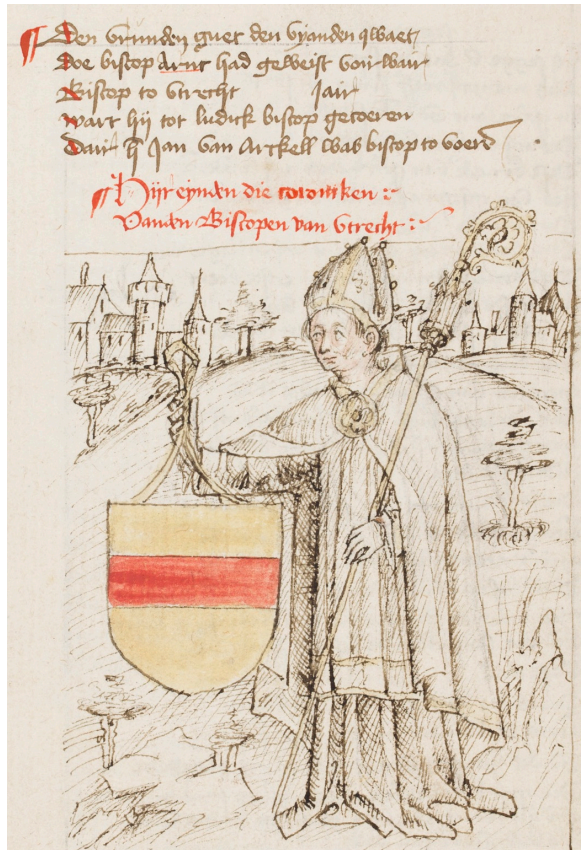 Den vrunden guet den vyanden qwaet
Doe biscop Arnt had geweist voirwair
Biscop to Vtrecht Jair
wart hij tot ludick biscop gecoeren
Dair Jan van Arckell was biscop to voere
Hijr eynden die coroniken
Vanden Biscopen van Vtrecht